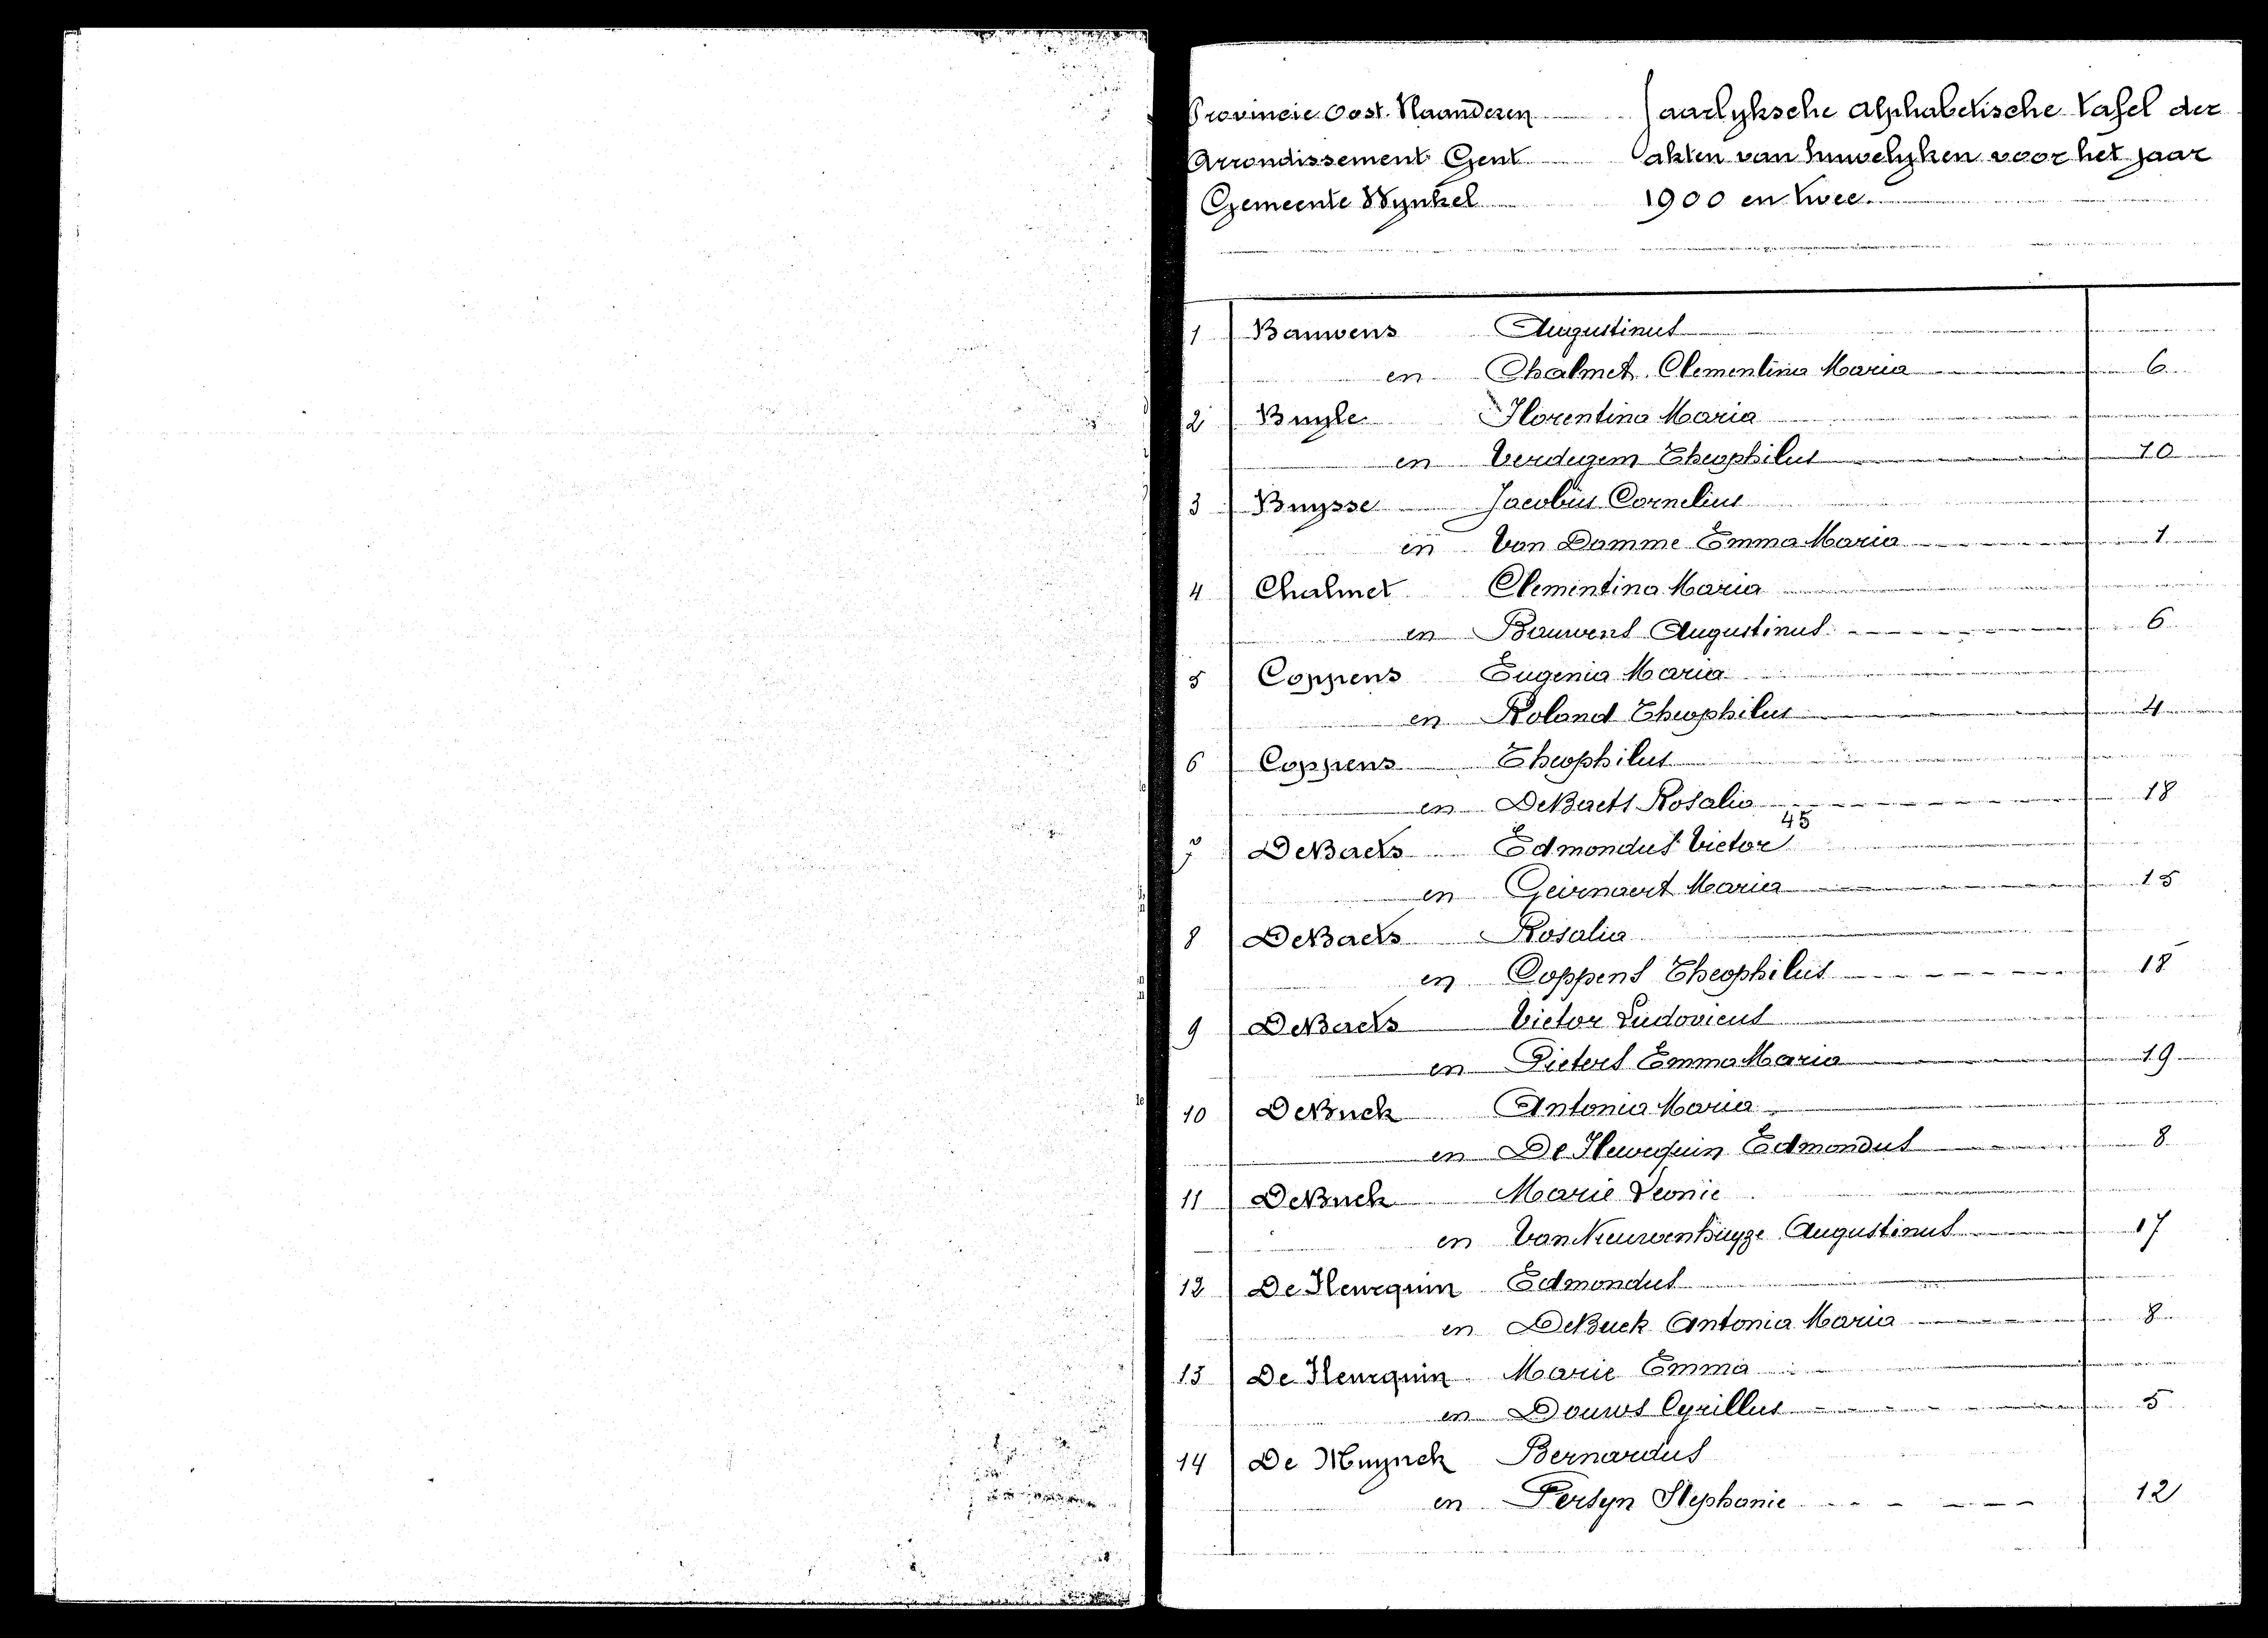 Provincie Oost. Vlaanderen Jaarlyksche alphabetische tafel der
Arrondissement Gent akten van huwelyken voor het jaar
Gemeente Wynkel 1900 en twee.
1 Bauwens Augustinus
en Chalmet Clementina Maria 6
2 Buyle Florentina Maria
en Verdegem Theophilus 10
3 Buysse Jacobus Cornelius
en Van Damme Emma Maria 1
4 Chalmet Clementina Maria
en Bauwens Augustinus 6
5 Coppens Eugenia Maria
en Roland Theophilus 4
6 Coppens Theophilus
en DeBaets Rosalia 18
45
7 DeBaets Edmondus Victor
en Geirnaert Maria 15
8 DeBaets Rosalia
en Coppens Theophilus 18
9 DeBaets Victor Ludovicus
en Pieters Emma Maria 19
10 DeBuck Antonia Maria
en De Fleurquin Edmondus 8
11 DeBuck Marie Leonie
en Van Nieuwenhuyze Augustinus 17
12 De Fleurquin Edmondus
en DeBuck Antonia Maria 8
13 De Fleurquin Marie Emma
en Douws Cyrillus 5
14 De Muynck Bernardus
en Persyn Stephanie 12